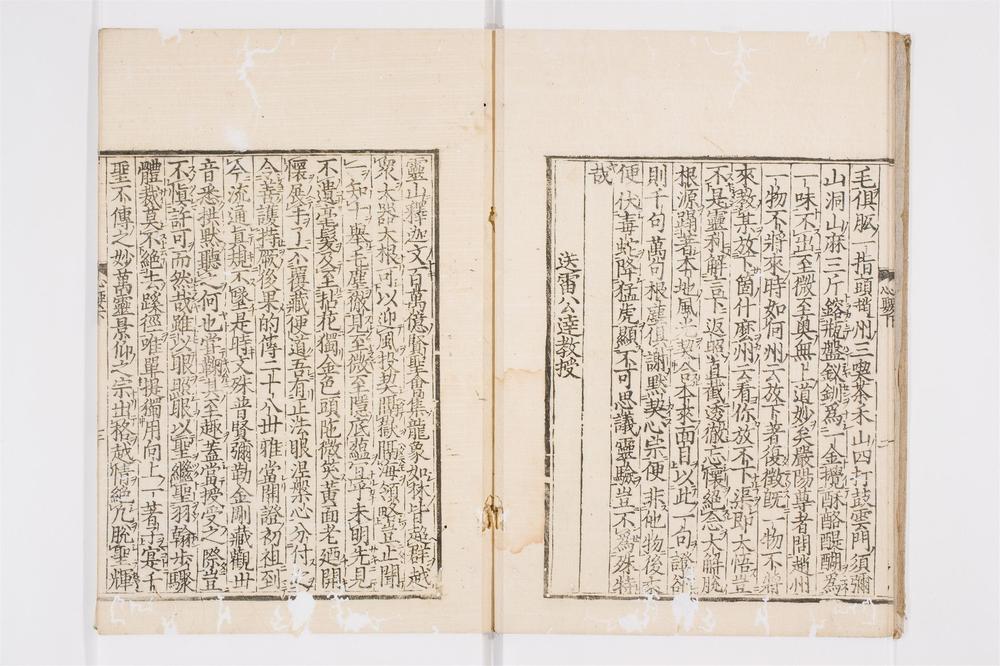 毛俱胝一指頭趙州三喫茶禾山四打鼓雲門須彌
山洞山麻三斤鎔瓶盤釵釧爲一金攪酥酪醍醐爲
一味不出至微至奧無上道妙矣嚴陽尊者問趙州
一物不將來時如何州云放下著復徵旣一物不將
來教某放下箇什麼州云看你放不下渠即大悟豈
不是靈利解言下返照直截透徹忘懷絕念大解脫
根源蹋著本地風光契合本來面目以此一句證卻
則千句萬句根塵俱謝默契心宗便非他物後來
便伏毒蛇降猛虎顯不可思議靈驗豈不爲殊特
哉
送雷公達教授
靈山釋迦文百萬億賢聖會集龍象如林皆超群越
衆大器大根可以迎風投契瞬徹瞞海須略豈止聞
一知十舉毛塵徹見至微至隱底蘊言于未明先見
不遺毫髮及至拈花獨金色頭陀微笑黃面老廼開
懷展手了不覆藏便道吾有正法眼涅槃心分付
今善護持厥後果的傳二十八世雅當開證初祖到
今流通眞規不墜是時文殊普賢彌勒金剛藏觀世
音悉拱默聽之何也當鞠其至趣蓋當授受之際豈
不愼許可而然哉雖以眼照眼以聖繼聖羽翰步驟
體裁莫不絕去蹊徑唯單提獨用向上一著子寔千
聖不傳之妙萬靈景仰之宗出格越情絕凡脫聖輝
心要下